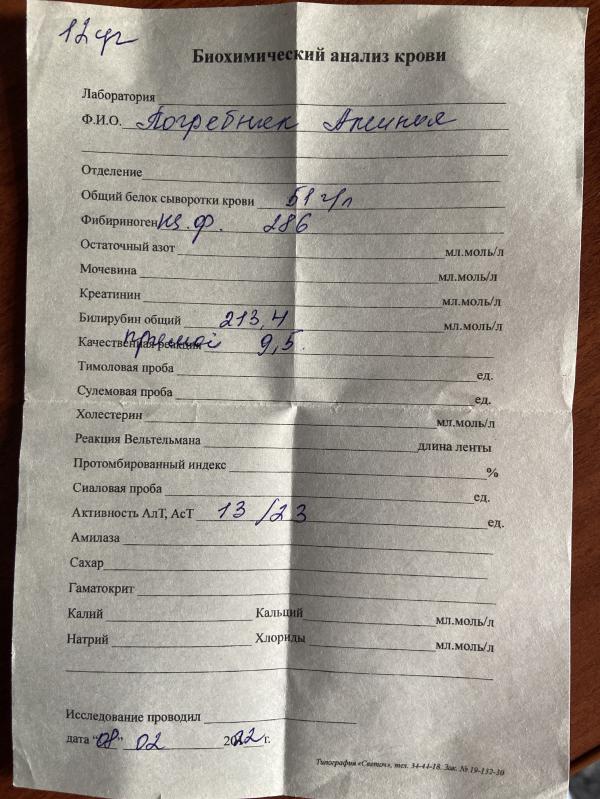 12 дг
Биохимический анализ крови
Лаборатория
Ф.И.О. Погребняк Арсения
Отделение
Общий белок сыворотки крови 51 г/л
Фибириноген щ.ф. 286
Остаточный азот мл.моль/л
Мочевина мл.моль/л
Креатинин мл.моль/л
Билирубин общий 213,4 мл.моль/л
Качественная реакция прямой 9,5
Тимоловая проба ед.
Сулемовая проба ед.
Холестерин мл.моль/л
Реакция Вельтельмана длина ленты
Протомбированный индекс %
Сиаловая проба ед.
Активность АлТ, АсТ 13/23 ед.
Амилаза
Сахар
Гаматокрит
Калий Кальций мл.моль/л
Натрий Хлориды мл.моль/л
Исследование проводил
дата "08" 02 2022 г.
Типография «Светоч», тел. 34-44-18. Зак. № 19-132-30